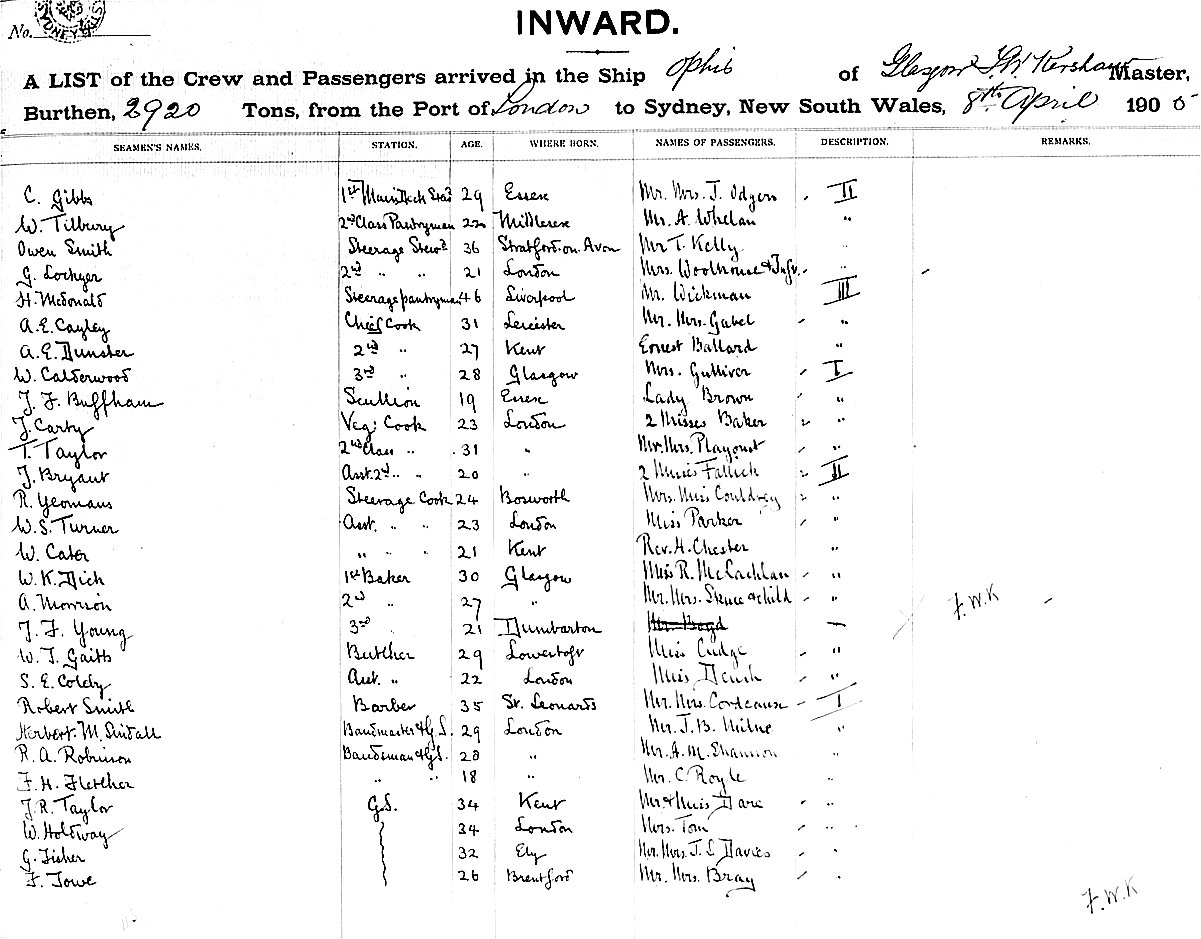 No.
SYDNEY
INWARD.
A LIST of the Crew and Passengers arrived in the Ship Ophir of Glasgow Kershaw Master,
Burthen, 2920 Tons, from the Port of London to Sydney, New South Wales, 8th April 1905
SEAMEN'S NAMES. STATION. AGE. WHERE BORN. NAMES OF PASSENGERS. DESCRIPTION. REMARKS.
C. Gibbs 1st 29 Essex Mr. Mrs. J. Odgers II
W. Tilbury 2nd Class Pantryman 22 Middlesex Mr. A. Whelan "
Owen Smith Steerage Stewd 36 Stratford on Avon Mr T. Kelly "
G. Lockyer 2nd " " 21 London Mrs. Woolhouse & Inft. "
H. McDonald Steerage pantryman 46 Liverpool Mr. Wickman III
A. E. Cayley Chief Cook 31 Leicester Mr. Mrs. Gabel "
A. E. Dunster 2nd " 27 Kent Ernest Ballard "
W. Calderwood 3rd " 28 Glasgow Mrs. Gulliver I
J. F. Buffham Scullion 19 Essex Lady Brown "
J. Carby Veg: Cook 23 London 2 Misses Baker "
T. Taylor 2nd Class " 31 " Mr. Mrs. "
J. Bryant Asst. 2nd " " 20 " 2 Misses II
R. Yeomans Steerage Cook 24 Bosworth Mrs. Miss Couldrey "
W. S. Turner Asst. " " 23 London Miss Parker "
W. Cater " " " 21 Kent Rev. H. Chester "
W. K. Dick 1st Baker 30 Glasgow Miss R. McLachlan "
A. Morrison 2nd " 27 " Mr. Mrs. & child " F.W.K
J. F. Young 3rd " 21 Dumbarton Mr. Boyd
W. T. Butcher 29 Lowestoft Miss Cudge "
S. E. Asst. " 22 London Miss "
Robert Smith Barber 35 St. Leonards Mr. Mrs. Cordeaux I
Herbert M. Bandmaster & G.S. 29 London Mr. J. B. Milne "
R. A. Robinson Bandsman & G.S. 28 " Mr. A. M. Shannon "
F. H. Fletcher " " 18 " Mr. C. Royle "
J. R. Taylor G.S. 34 Kent Mr & Miss Dare "
W. Holdway 34 London Mrs. Tom "
G. Fisher 32 Ely Mr. Mrs. J. L. Davies "
F. Towe 26 Brentford Mr. Mrs. Bray "
F.W.K